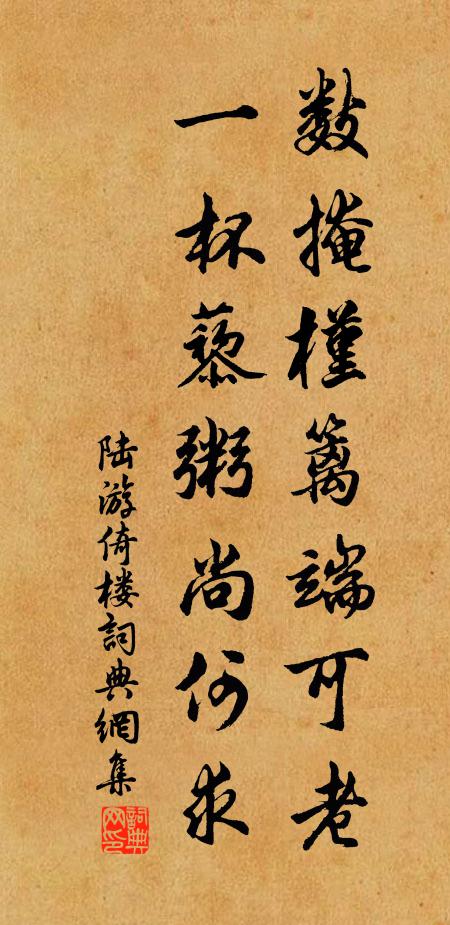 數掩槿篱端可老
一杯藜粥尚何求
陆游倚楼詞典網集
詞典网印